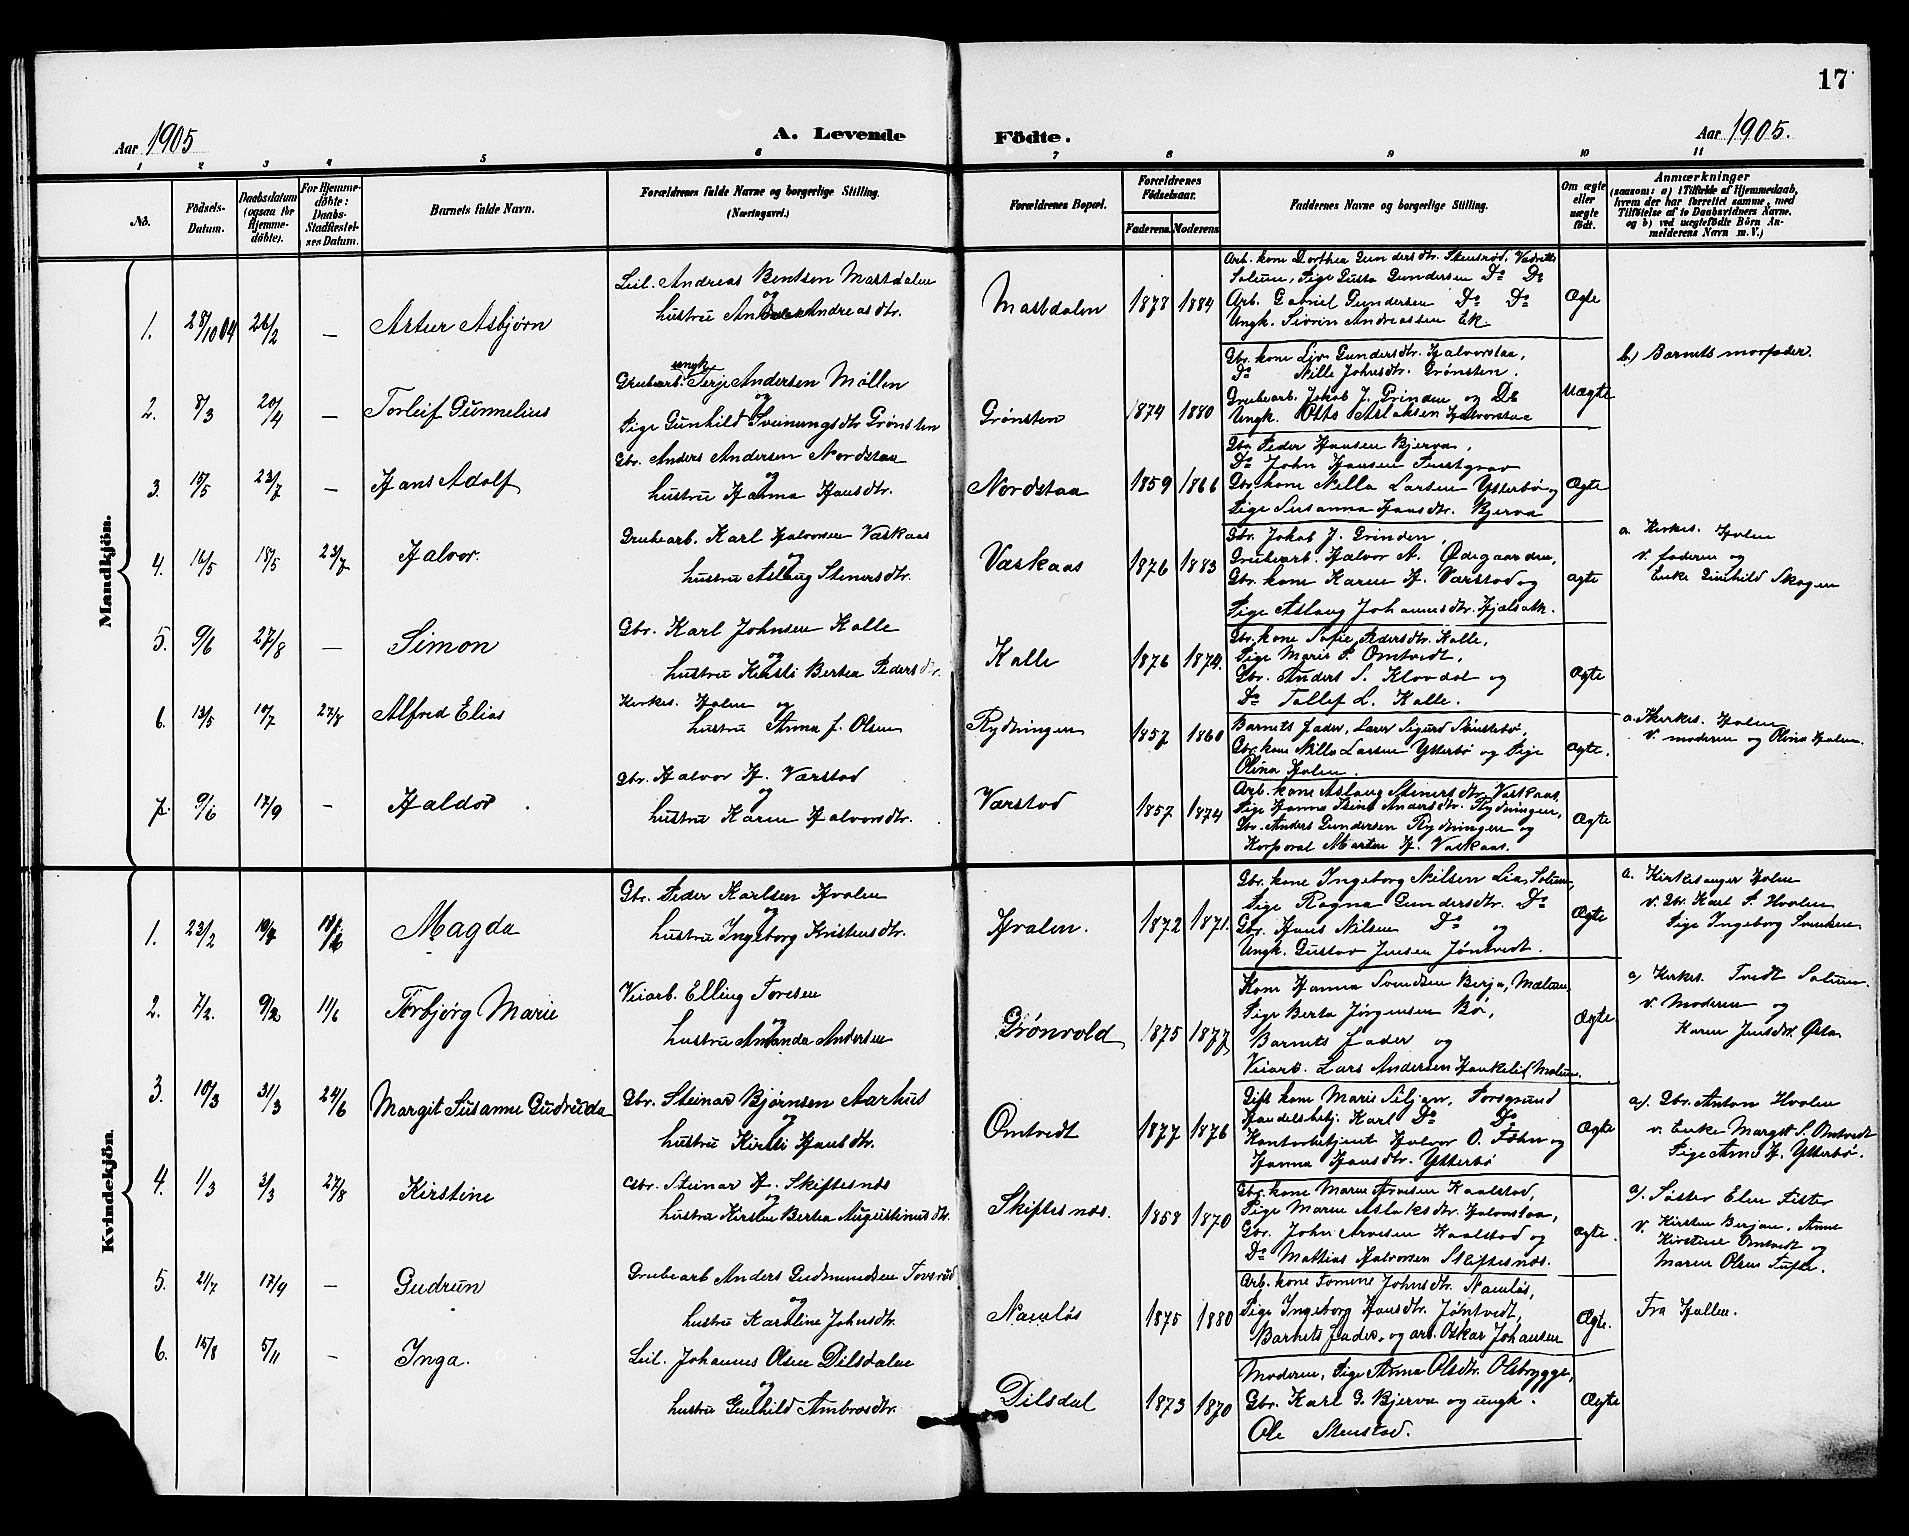 17
Aar 1905
A. Levende Födte.
Aar 1905.
1 2 3 4 5 6 7 8 9 10 11
No.
Födsels-Datum.
Daabsdatum (ogsaa for Hjemmedöbte).
For Hjemmedöbte: Daabs-Stadfæstelses Datum.
Barnets fulde Navn.
Forældrenes fulde Navne og borgerlige Stilling. (Næringsvei.)
Forældrenes Bopæl.
Forældrenes Födselsaar.
Faderens. Moderens.
Faddernes Navne og borgerlige Stilling.
Om ægte eller uægte födt.
Anmærkninger
(saasom: a) i Tilfælde af Hjemmedaab, hvem der har forrettet samme, med Tilföielse af to Daabsvidners Navne, og b) ved uægtefödte Börn Anmelderens Navn m. V.)
Mandkjön.
1. 28/10 04 26/2 — Artur Asbjørn
Leil. Andreas Bentsen Mastdalen
og
hustru Andreasdtr.
Mastdalen 1878 1884
Arb. kone Dorthea Gundersdtr. Stensrød,
Solum, Pige Gusta Gundersen Do Do
Arb. Gabriel Gundersen Do Do
Ungk. Sivrin Andreassen Ek
Ægte
2. 8/3 20/4 — Torleif Gunnelius
ungk.
Grubearb. Terje Andersen Møllen
og
Pige Gunhild Sveinungsdtr Grønsten
Grønsten 1874 1880
Gbr. kone Liv Gundersdtr. Halvorstaa,
Do Nille Johnsdtr. Grønsten.
Grubearb. Jakob J. Grinden og Do
Ungk. Otto Aslaksen Halvorstaa
Uægte
b) Barnets morfader.
3. 15/5 23/7 — Hans Adolf
Gbr. Anders Andersen Nordstaa
og
hustru Hanna Hansdtr.
Nordstaa 1859 1866
Gbr. Peder Hansen Bjerva,
Do John Hansen
Gbr. kone Nilla Larsen Ytterbø og
Pige Susanna Hansdtr. Bjerva
Ægte
4. 16/5 18/5 23/7 Halvor.
Grubearb. Karl Halvorsen Vaskaas
og
hustru Aslaug Steinersdtr.
Vaskaas 1876 1883
Gbr. Jakob J. Grinden,
Grubearb. Halvor A. Ødegaarden,
Gbr. kone Karen H. Værstad og
Pige Aslaug Johannesdtr.
ægte
a. Kirkes. Holen
v. faderen og
Enke Gunhild Skogen
5. 9/6 27/8 — Simon
Gbr. Karl Johnsen Kalle
og
hustru Kirsti Bertea Pedersdtr.
Kalle 1876 1874.
Gbr. kone Sofie Pedersdtr. Kalle,
Pige Marie P. Omtvedt,
Gbr. Anders S. Klovdal og
Do Tollef L. Kalle.
Ægte
6. 13/5 10/7 27/8 Alfred Elias
Kirkes. Holen og
hustru Anna J. Olsen
Rydningen 1857 1860
Barnets fader, Lærer Sigurd
Gbr. kone Nilla Larsen Ytterbø og Pige
Olina Holen.
Ægte.
a. Kirkes. Holen
v. moderen og Olina Holen.
7. 9/6 17/9 — Haldor.
Gbr. Halvor H. Værstad
og
hustru Karen Halvorsdtr.
Værstad 1857 1874
Arb. kone Aslaug Steinersdtr. Vaskaas,
Pige Hanna Andersdtr. Rydningen,
Gbr. Anders Gundersen Rydningen og
Korporal Marten H. Vaskaas.
Ægte
Kvindekjön.
1. 23/2 Magda
Gbr. Peder Karlsen Hvalen
og
hustru Ingeborg Kristensdtr.
Hvalen. 1872 1871.
Gbr. kone Ingeborg Nilsen Lia, Solum,
Pige Ragna Gundersdtr. Do
Gbr. Hans Nilsen Do og
Ungk. Gustav Jensen Jøntvedt.
Ægte
a. Kirkesanger Holen
v. Gbr. Karl P. Hvalen
Pige Ingeborg
2. 7/2. 9/2 11/6 Torbjørg Marie
Veiarb. Elling Toresen
og
hustru Amanda Andersen
Grønvold 1875 1877
Kone Hanna Svendsen Berja, Mælum
Pige Berta Jørgensen Bø,
Barnets fader og
Veiarb. Lars Andersen Haukelid Mælum.
Ægte
a) Kirkes. Tvedt Solum.
v. Moderen og
Karen Jensdtr.
3. 10/3 31/3 24/6 Margit Susanne Gudruda
Gbr. Steinar Bjørnsen Aarhus
og
hustru Kirsti Hansdtr.
Omtvedt 1877 1876
Gift kone Maris Siljan, Porsgrund
Handelsbetj. Karl Do Do
Kontorbetjent Halvor O. og
Hanna Hansdtr. Ytterbø
Ægte
a). Gbr. Anton Hvalen
v. Enke Margit S. Omtvedt
Pige Anne H. Ytterbø.
4. 1/3 3/3 27/8 Kirstine
Gbr. Steinar H. Skiftesnæs
og
hustru Kirsten Bertea Augustinusdtr.
Skiftesnæs. 1858 1870
Gbr. kone Maren Arvesen Kaalstad,
Pige Maren Aslaksdtr. Halvorstaa,
Gbr. John Arvesen Kaalstad og
Do Mathias Halvorsen Skiftesnæs.
Ægte.
a). Søster Elen
v. Kirsten Berjan, Anne
Kirstine Omtvedt og
Maren Olsen Tufte.
5. 21/7 17/9 — Gudrun
Grubearb Anders Gudmundsen
og
hustru Karoline Johnsdtr.
Namløs 1875 1880
Arb. kone Tomine Johnsdtr. Namløs,
Pige Ingeborg Hansdtr. Jøntvedt,
Barnets fader, og arb. Oskar Johansen
Ægte.
Fra Hallen.
6. 15/8 5/11 — Inga.
Leil. Johannes Olsen Dilsdalen
og
hustru Gunhild Ambrosdtr.
Dilsdal 1873 1870
Moderen, Pige Anna Olsdtr. Olsbrygge,
Gbr. Karl G. Bjerva og ungk.
Ole Stenstad.
Ægte